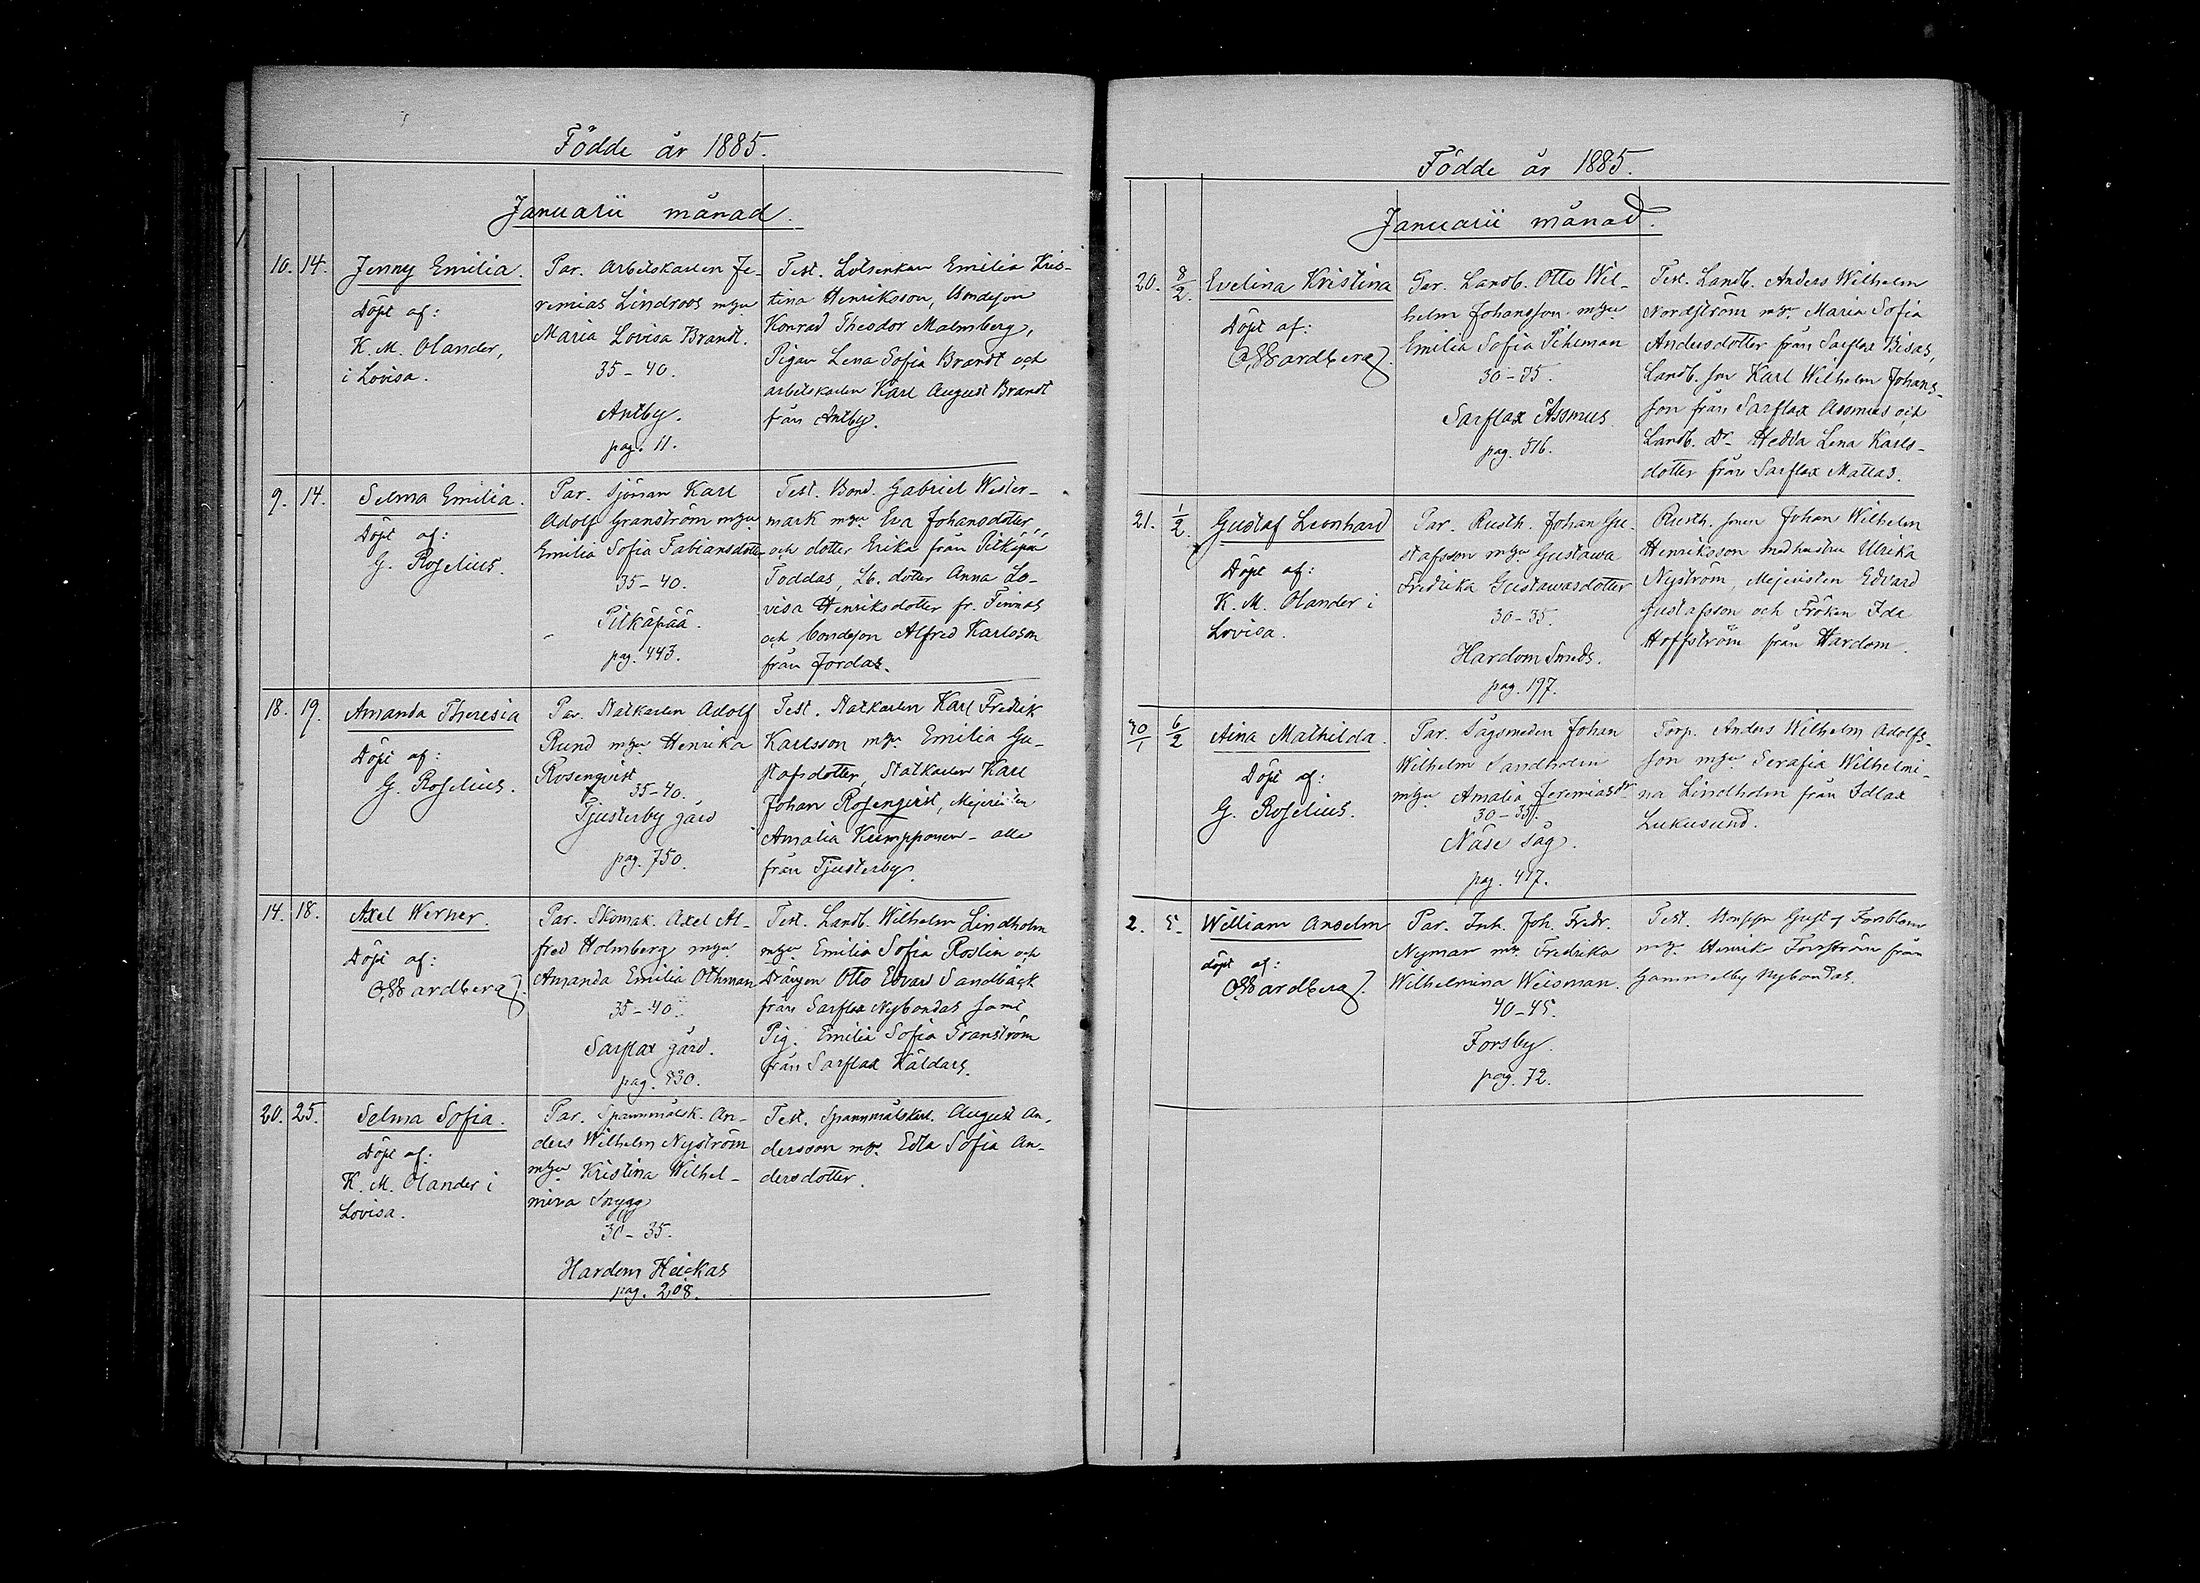 Födde år 1885.
Januarii månad.
10. 14. Jenny Emilia.
Döpt af:
K. M. Olander,
i Lovisa.
Par. Arbetskarlen Je-
remias Lindroos m hu
Maria Lovisa Brandt.
35-40.
Antby.
pag. 11.
Test. Lotsenkan Emilia Kris-
tina Henriksson, Bondeson
Konrad Theodor Malmberg,
Pigan Lena Sofia Brandt och
arbetskarlen Karl August Brandt
från Antby.
9. 14. Selma Emilia.
Döpt af:
G. Roselius.
Par. Sjöman Karl
Adolf Granström m hu
Emilia Sofia Fabiansdotter
35-40.
Pitkäpää.
pag. 443.
Test. Bond. Gabriel Wester-
mark m hu Eva Johansdotter,
och dotter Erika från Pitkäpää
Toddas, Lb. dotter Anna Lo-
visa Henriksdotter fr. Finnas
och bondeson Alfred Karlsson
från Jordas.
18. 19. Amanda Theresia
Döpt af:
G. Roselius.
Par. Statkarlen Adolf
Rund m hu Henrika
Rosenqvist
35-40.
Tjusterby gård
pag. 750.
Test. Statkarlen Karl Fredrik
Karlsson m hu Emilia Gu-
stafsdotter, Statkarlen Karl
Johan Rosenqvist, Mejeristen
Amalia Kumpponen - alla
från Tjusterby.
14. 18. Axel Werner.
Döpt af:
Wardberg.
Par. Skomak. Axel Al-
fred Holmberg m hu
Amanda Emilia Othman
35-40.
Sarflax gård.
pag. 830.
Test. Landb. Wilhelm Lindholm
m hu Emilia Sofia Roslin och
Drängen Otto Edvard Sandbäck
från Sarflax Nybondas samt
Pig. Emilia Sofia Granström
från Sarflax Käldars.
20. 25. Selma Sofia.
Döpt af:
K. M. Olander i
Lovisa.
Par. Spannmålsk. An-
ders Wilhelm Nyström
m hu Kristina Wilhel-
mina Snygg
30-35.
Hardom Heickas
pag. 208.
Test. Spannmålskarl. August An-
dersson m h. Edla Sofia An-
dersdotter.
Födde år 1885.
Januarii månad.
20. 8/2. Evelina Kristina
Döpt af:
Wardberg.
Par. Landb. Otto Wil-
helm Johansson m hu
Emilia Sofia Pihlman
30-35.
Sarflax Assmus
pag. 516.
Test. Landb. Anders Wilhelm
Nordström m h. Maria Sofia
Andersdotter från Sarflax Bisas,
Landb. son Karl Wilhelm Johans-
son från Sarflax Assmus och
Landb. dr Hedda Lena Karls-
dotter från Sarflax Mattas.
21. 1/2. Gustaf Leonhard
Döpt af:
K. M. Olander i
Lovisa.
Par. Rusth. Johan Gu-
stafsson m hu Gustawa
Fredrika Gustawasdotter
30-35.
Hardom Smeds.
pag. 197.
Rusth. sonen Johan Wilhelm
Henriksson med hustru Ulrika
Nyström, Mejeristen Edvard
Gustafsson och Fröken Ida
Hoffström från Hardom.
6/2 Aina Mathilda.
Döpt af:
G. Roselius.
Par. Sågsmeden Johan
Wilhelm Sandholm
m hu Amalia Jeremiasdr
30-35.
Näse såg.
pag. 417.
Torp. Anders Wilhelm Adolfs-
son m hu Serafia Wilhelmi-
na Lindholm från Idlax
Lukusund.
2. 5. William Anselm
döpt af:
Wardberg.
Par. Inh. Joh. Fredr.
Nyman m h. Fredrika
Wilhelmina Weisman.
40-45.
Forsby.
pag. 72.
Test. Gustaf Forsblom
m h. Henrika Forsström från
Gammelby Nybondas.